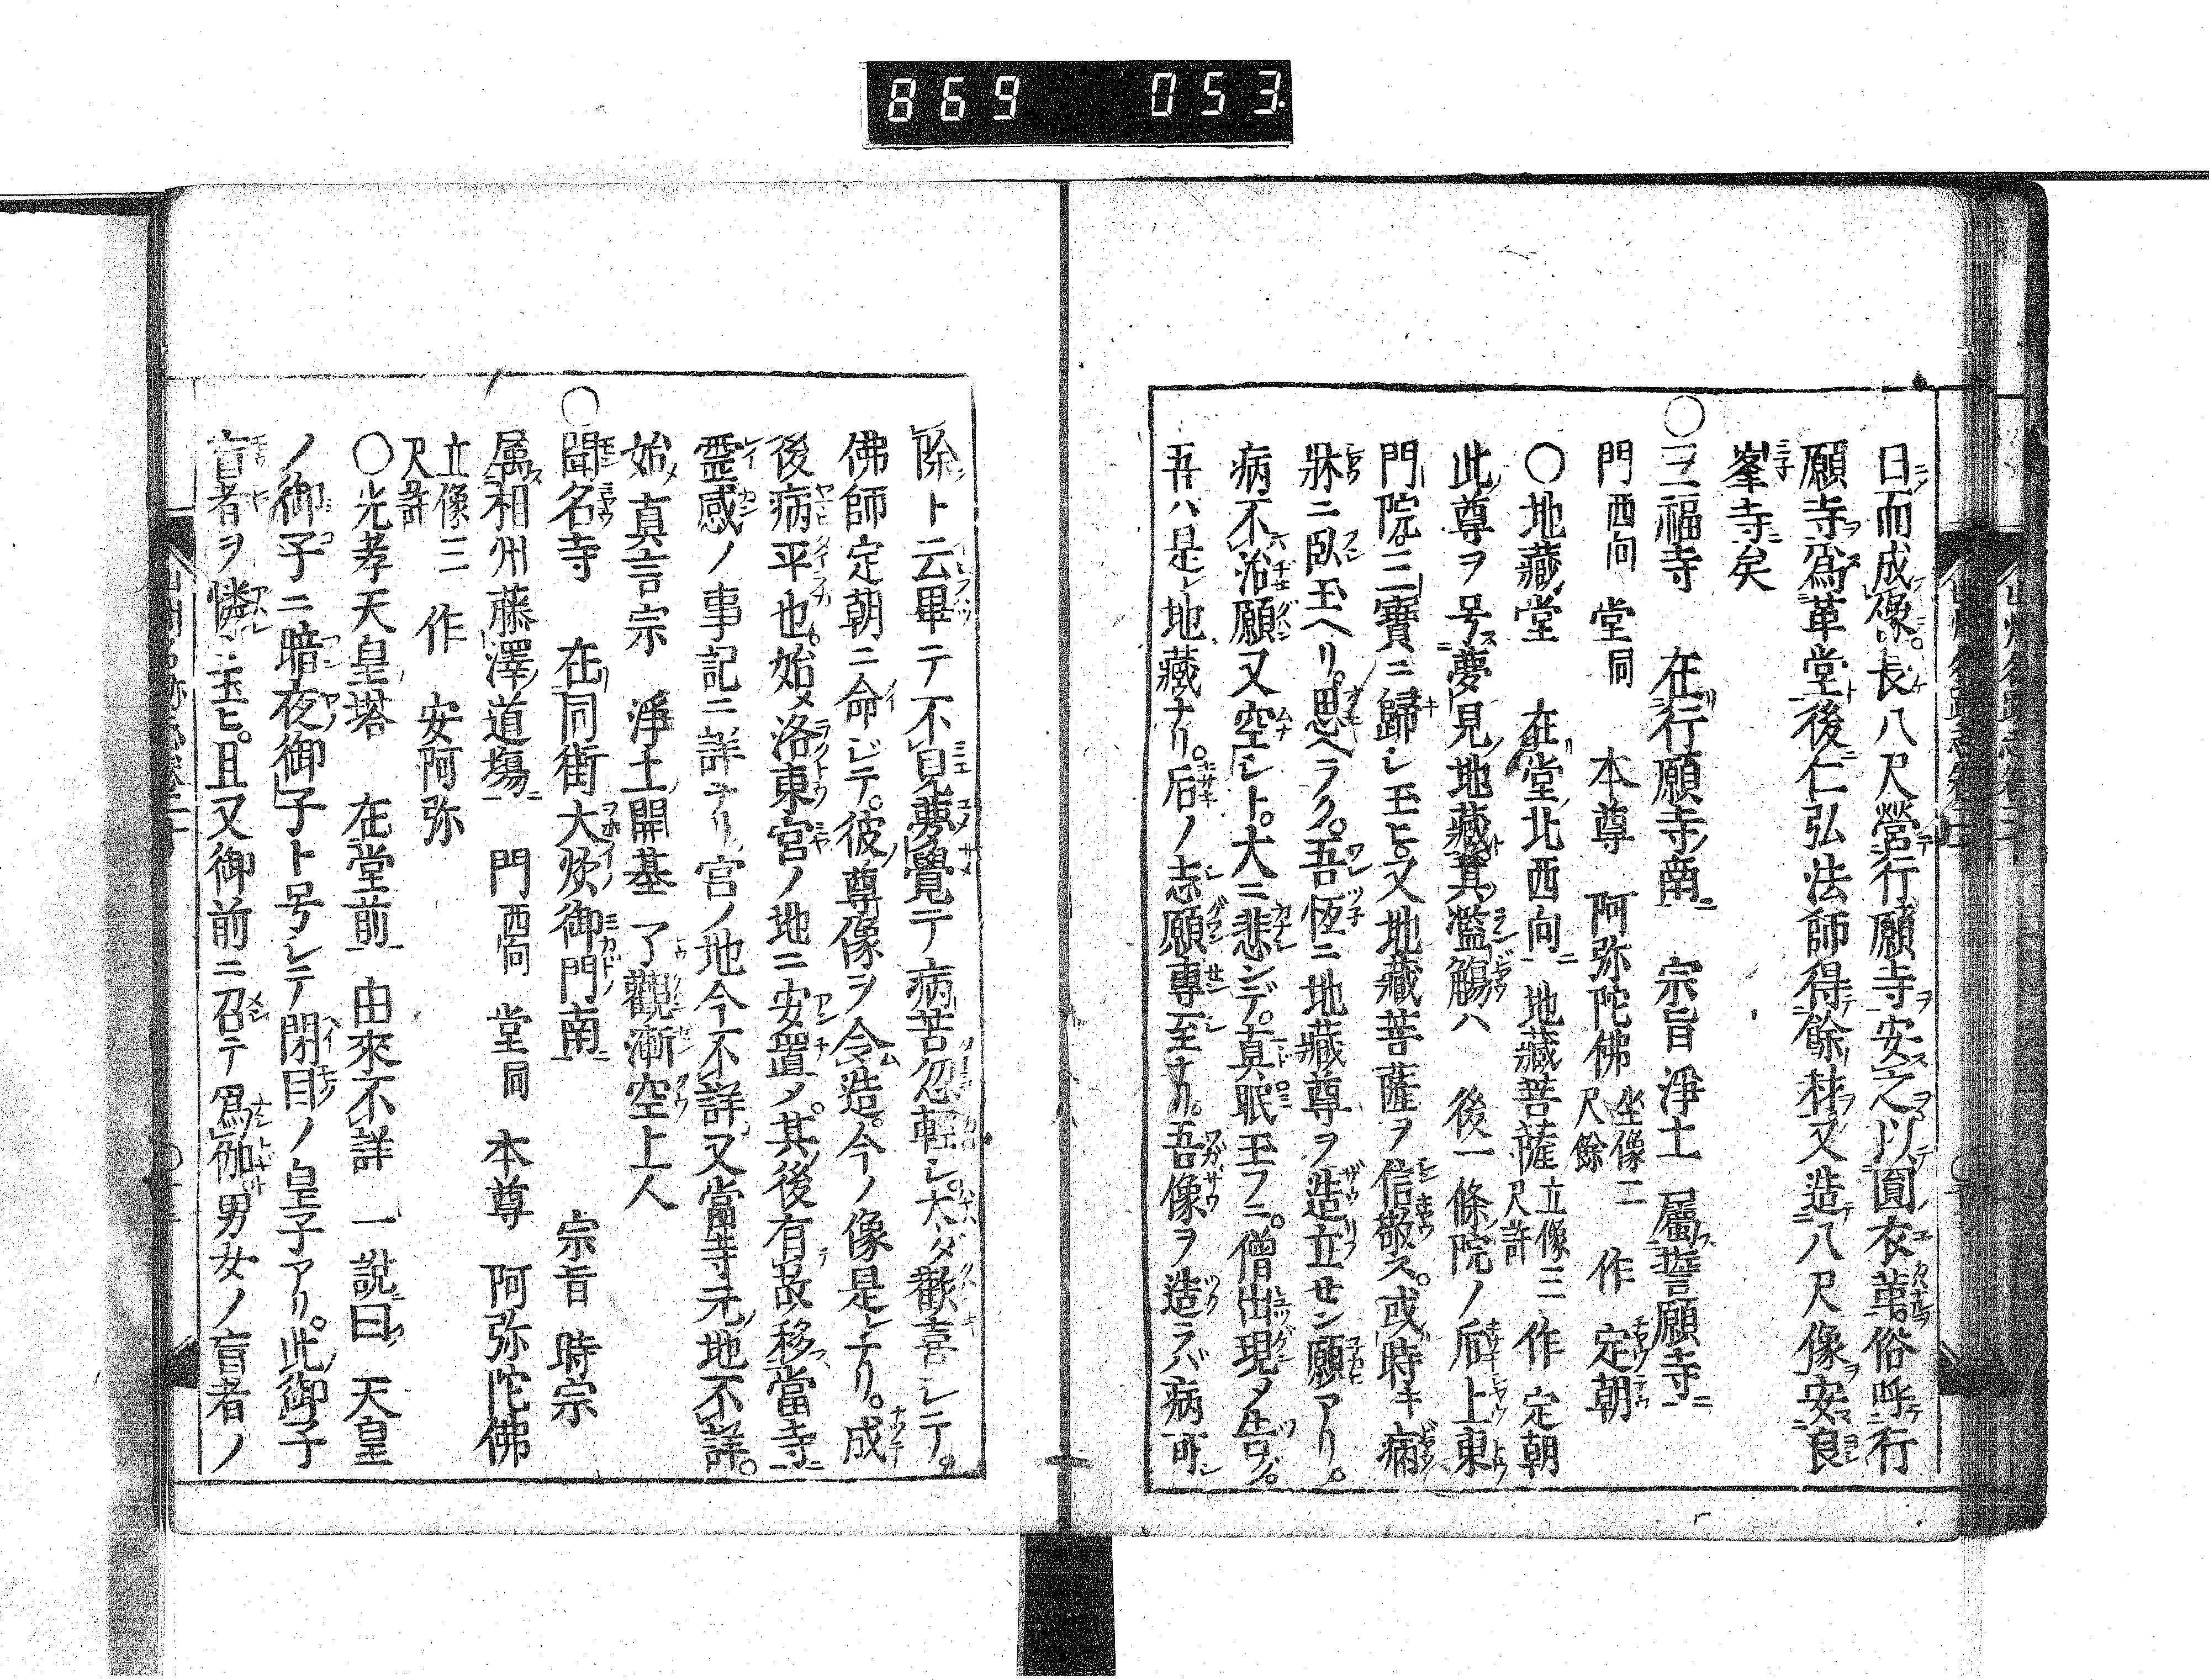 869 053
日而成像長八尺營行願寺安之以圓衣革俗呼行
願寺爲革堂後仁弘法師得餘材又造八尺像安良
峯寺矣
〇三福寺 在行願寺南 宗旨淨土 屬誓願寺
門西向 堂同 本尊 阿弥陀佛 坐像二尺餘 作 定朝
〇地藏堂 在堂北西向 地藏菩薩 立像三尺許 作 定朝
此尊ヲ号夢見地藏其濫觴ハ 後一條院ノ后上東
門院三寶ニ歸シ玉ヒ又地藏菩薩ヲ信敬ス。或時キ病
牀ニ臥玉ヘリ。思ヘラク。吾恆ニ地藏尊ヲ造立セン願アリ。
病不治願又空シト。大ニ悲ンデ。真眠玉フニ。僧出現メ告グ。
吾ハ是レ地藏ナリ。后ノ志願專至ナリ。吾像ヲ造ラバ病可
除ト云畢テ不見夢覺テ病苦忽輕シ。大ダ歡喜シテ。
佛師定朝ニ命ジテ。彼尊像ヲ令造。今ノ像是レナリ。成
後病平也。始メ洛東宮ノ地ニ安置メ。其後有故移當寺
霊感ノ事記ニ詳ナリ宮ノ地今不詳又當寺元地不詳。
始真言宗 淨土開基 了觀漸空上人
〇聞名寺 在同街大炊御門南 宗旨 時宗
属相州藤澤道場 門西向 堂同 本尊 阿弥陀佛
立像三尺許 作 安阿弥
〇光孝天皇塔 在堂前 由來不詳 一說曰 天皇
ノ御子ニ暗夜御子ト号シテ閉目ノ皇子アリ。此御子
盲者ヲ憐玉ヒ。且又御前ニ召テ爲伽男女ノ盲者ノ